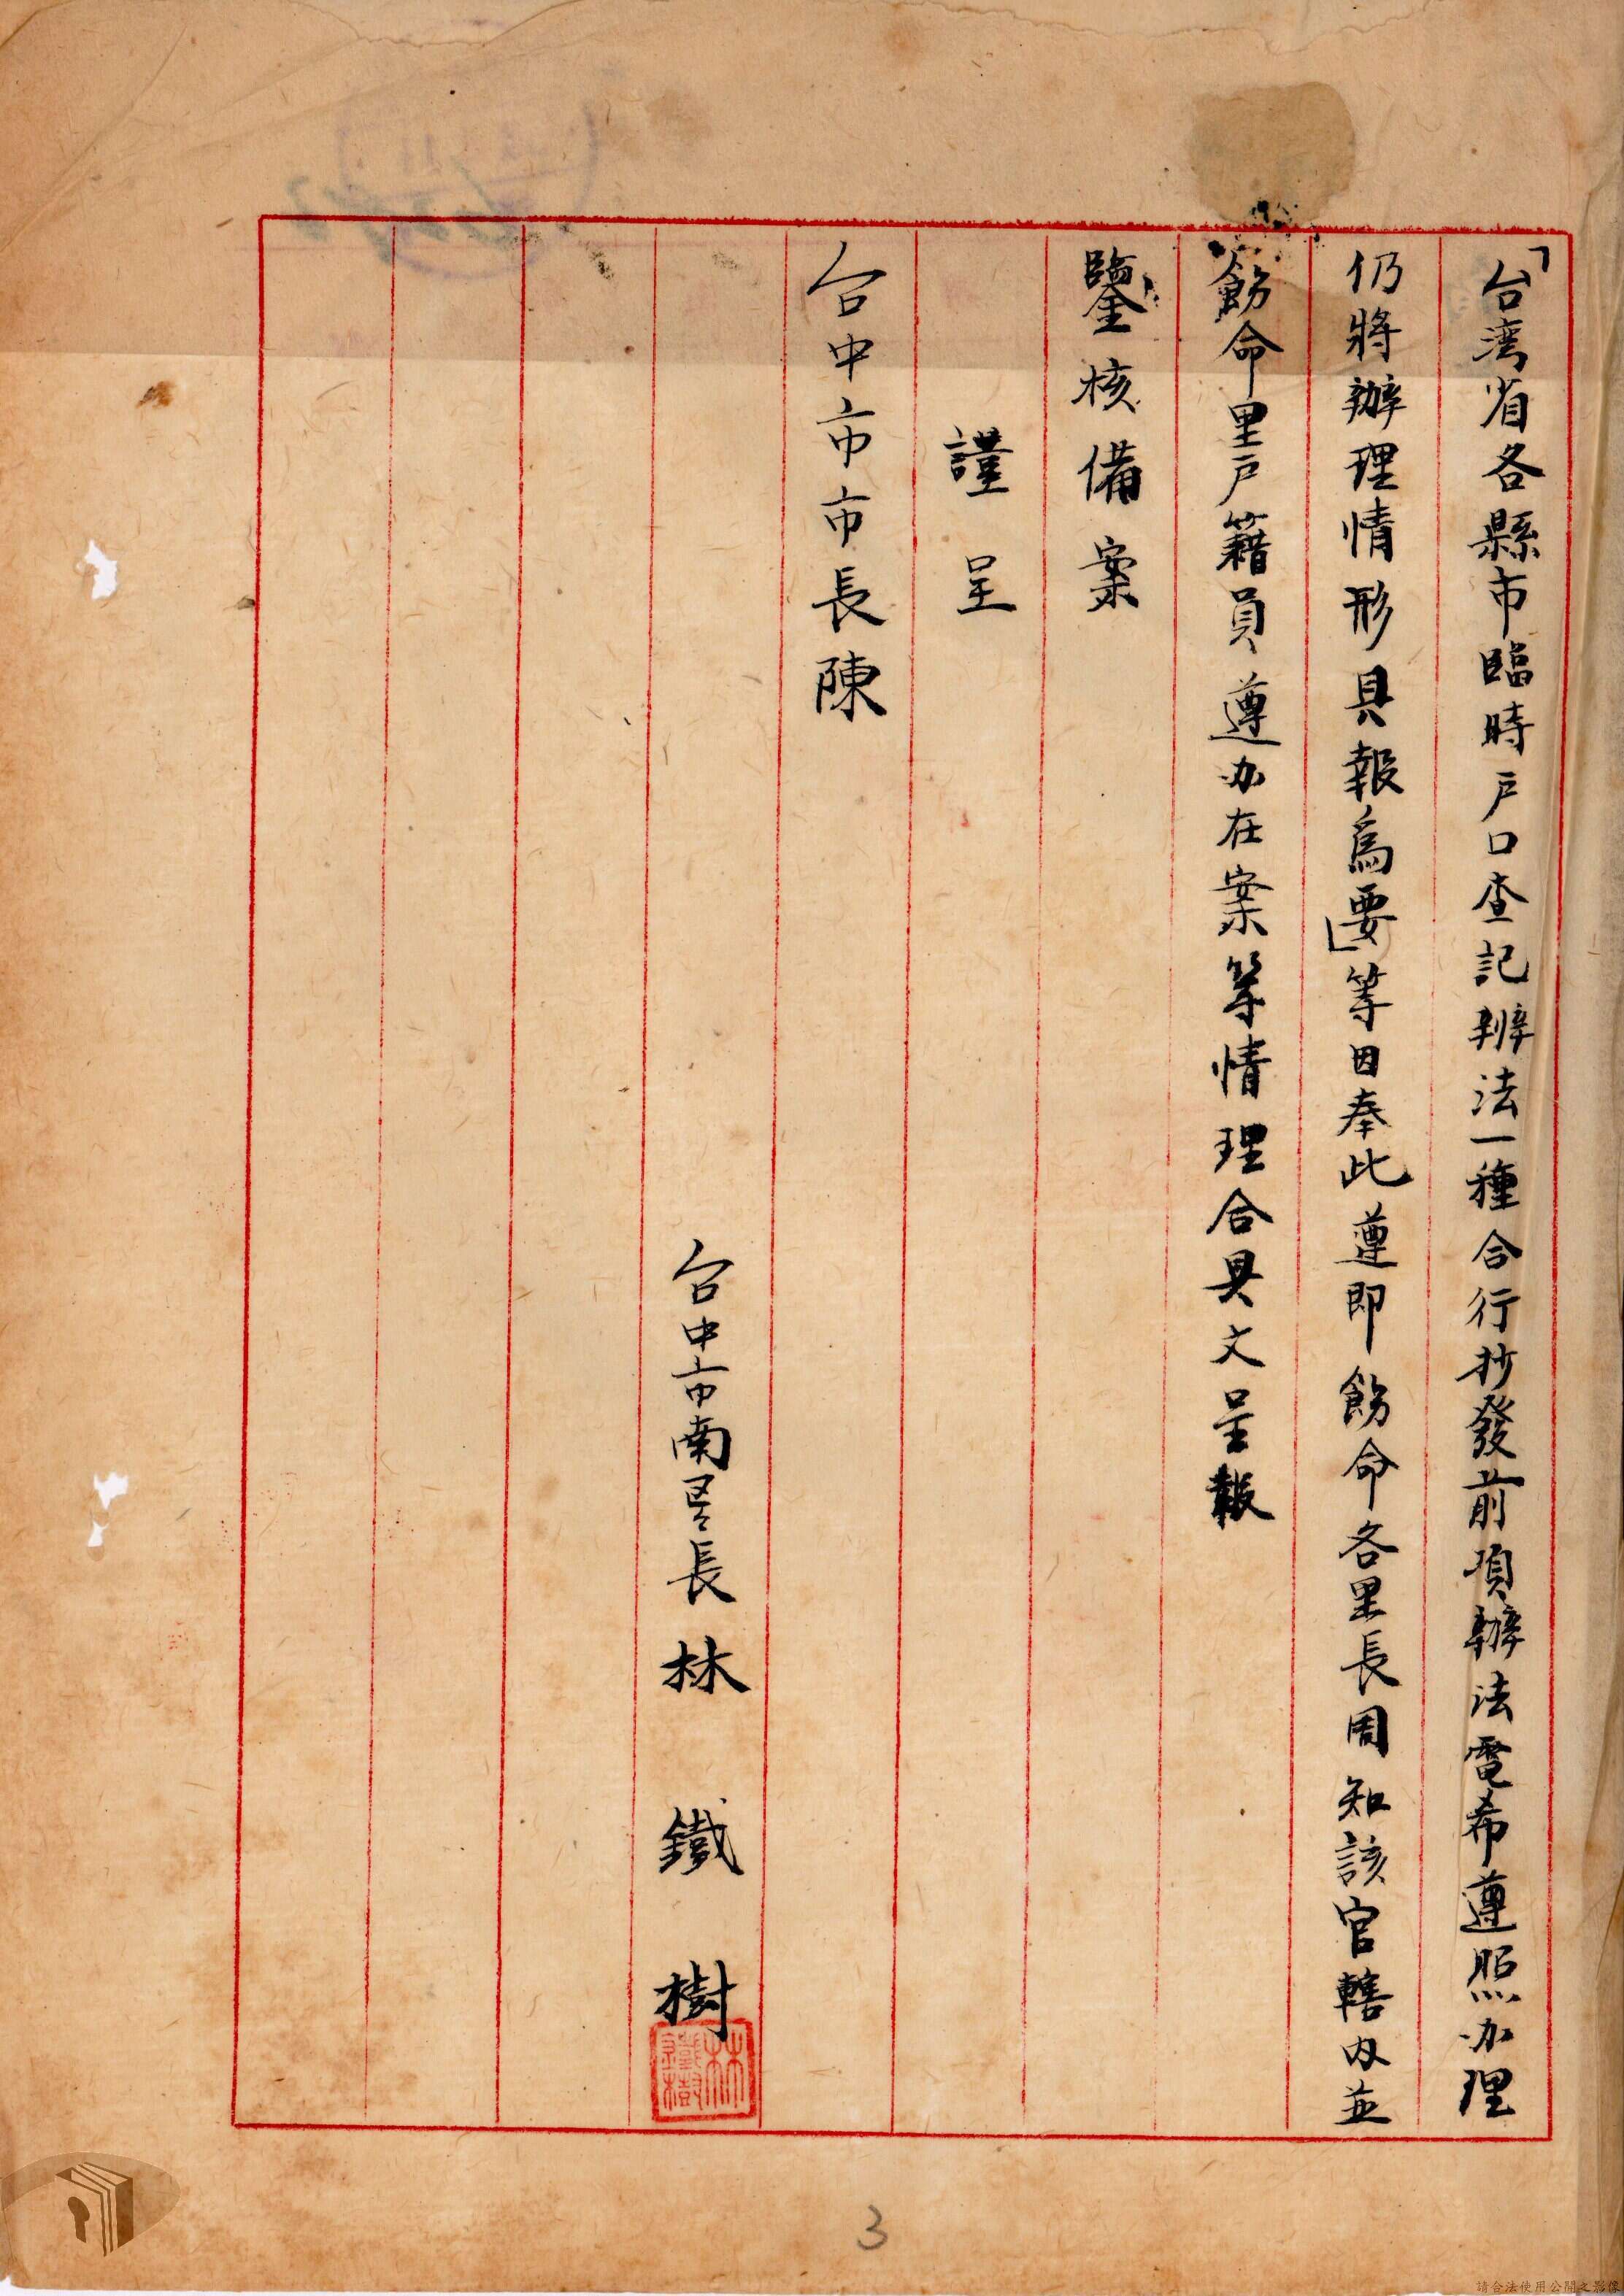 「台湾省各縣市臨時戶口查記辦法一種合行抄發前項辦法電希遵照办理
仍將辦理情形具報為要」等因奉此遵即飭命各里長周知該官轄內並
飭命里戶籍員遵办在案等情理合具文呈報
鑒核備案
謹呈
台中市市長陳
台中市南區長林鐵樹
林鐵樹
3
請合法使用公開之影像